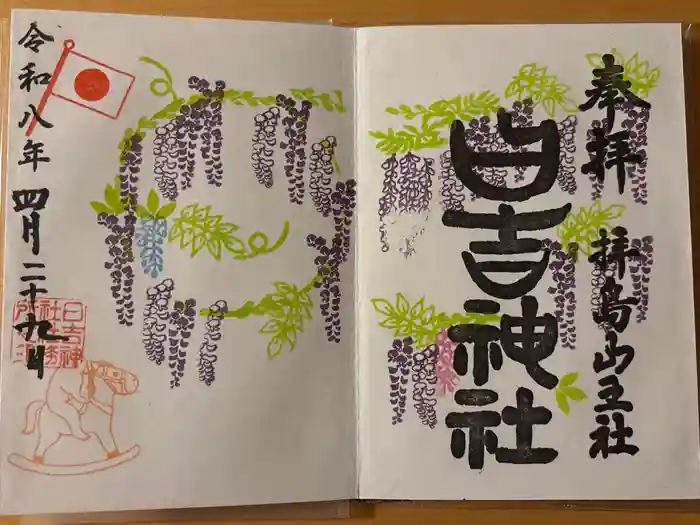 奉拝
拝島山王社
日吉神社
令和八年四月二十九日
日吉神
社社務
所之印